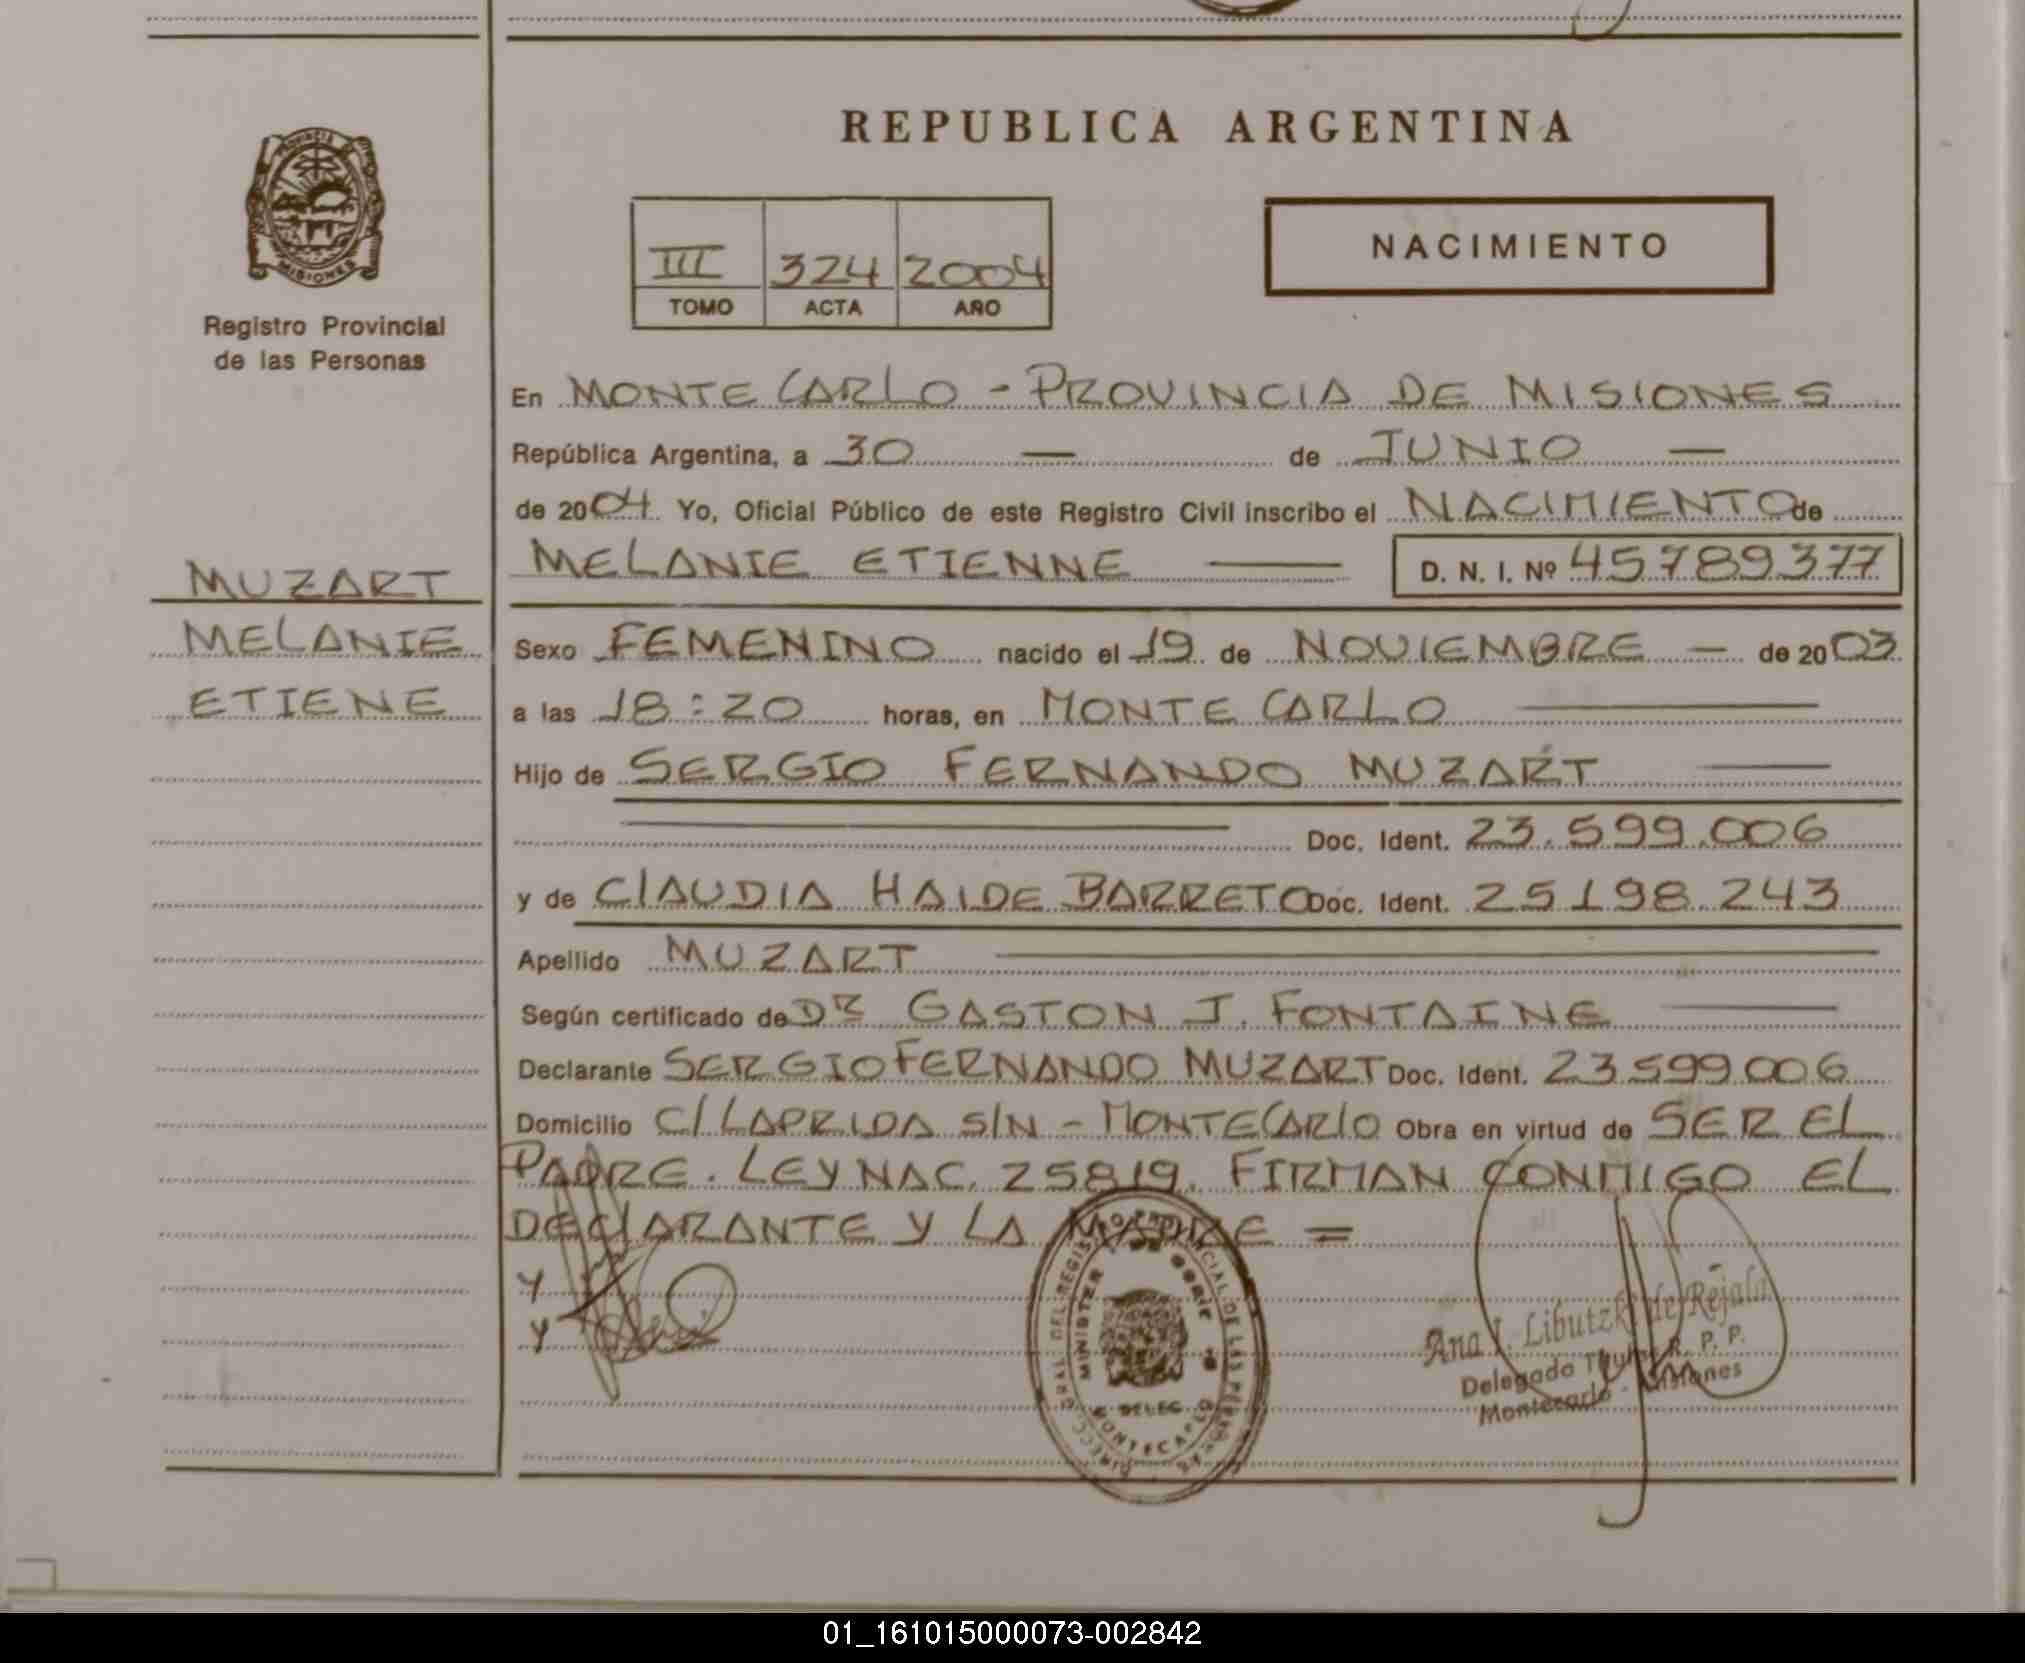 REPUBLICA ARGENTINA
PROVINCIA
MISIONES
Registro Provincial
de las Personas
III 324 2004
TOMO ACTA AÑO
NACIMIENTO
En MONTE CARLO - PROVINCIA DE MISIONES
República Argentina, a 30 — de JUNIO —
de 2004 Yo, Oficial Público de este Registro Civil inscribo el NACIMIENTO de
MELANIE ETIENNE — D. N. I. Nº 45789377
MUZART
MELANIE
ETIENE
Sexo FEMENINO nacido el 19 de NOVIEMBRE — de 2003
a las 18:20 horas, en MONTE CARLO —
Hijo de SERGIO FERNANDO MUZART —
Doc. Ident. 23.599.006
y de CLAUDIA HAIDE BARRETO Doc. Ident. 25198.243
Apellido MUZART —
Según certificado de DR GASTON J. FONTAINE —
Declarante SERGIO FERNANDO MUZART Doc. Ident. 23599006
Domicilio C/ LAPRIDA S/N - MONTECARLO Obra en virtud de SER EL
PADRE. LEY NAC. 25819. FIRMAN CONMIGO EL
DECLARANTE Y LA MADRE =
Y
Y
MINISTER DE GOBIE
DELEG
MONTECARLO
Ana I. Libutzki de Rejala
Delegado Titular R. P. P.
Montecarlo - Misiones
01_161015000073-002842